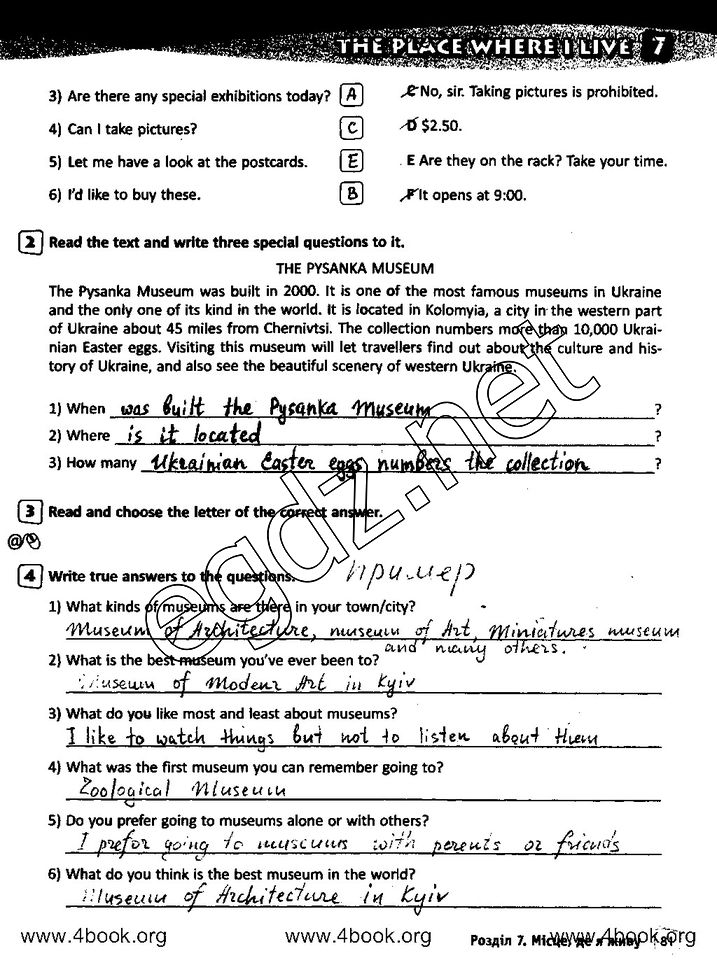 THE PLACE WHERE I LIVE 7
3) Are there any special exhibitions today? A
C No, sir. Taking pictures is prohibited.
4) Can I take pictures? C
D $2.50.
5) Let me have a look at the postcards. E
E Are they on the rack? Take your time.
6) I'd like to buy these. B
F It opens at 9:00.
2 Read the text and write three special questions to it.
THE PYSANKA MUSEUM
The Pysanka Museum was built in 2000. It is one of the most famous museums in Ukraine
and the only one of its kind in the world. It is located in Kolomyia, a city in the western part
of Ukraine about 45 miles from Chernivtsi. The collection numbers more than 10,000 Ukrai-
nian Easter eggs. Visiting this museum will let travellers find out about the culture and his-
tory of Ukraine, and also see the beautiful scenery of western Ukraine.
1) When was built the Pysanka Museum ?
2) Where is it located ?
3) How many Ukrainian Easter eggs numbers the collection ?
3 Read and choose the letter of the correct answer.
egdz.net
4 Write true answers to the questions. пример
1) What kinds of museums are there in your town/city?
Museum of Architecture, museum of Art, Miniatures museum
and many others.
2) What is the best museum you've ever been to?
Museum of Modenr Art in Kyiv
3) What do you like most and least about museums?
I like to watch things but not to listen about them
4) What was the first museum you can remember going to?
Zoological Museum
5) Do you prefer going to museums alone or with others?
I prefor going to museums with perents or friends
6) What do you think is the best museum in the world?
Museum of Architecture in Kyiv
www.4book.org www.4book.org Розділ 7. Місце, де я живу 81 www.4book.org